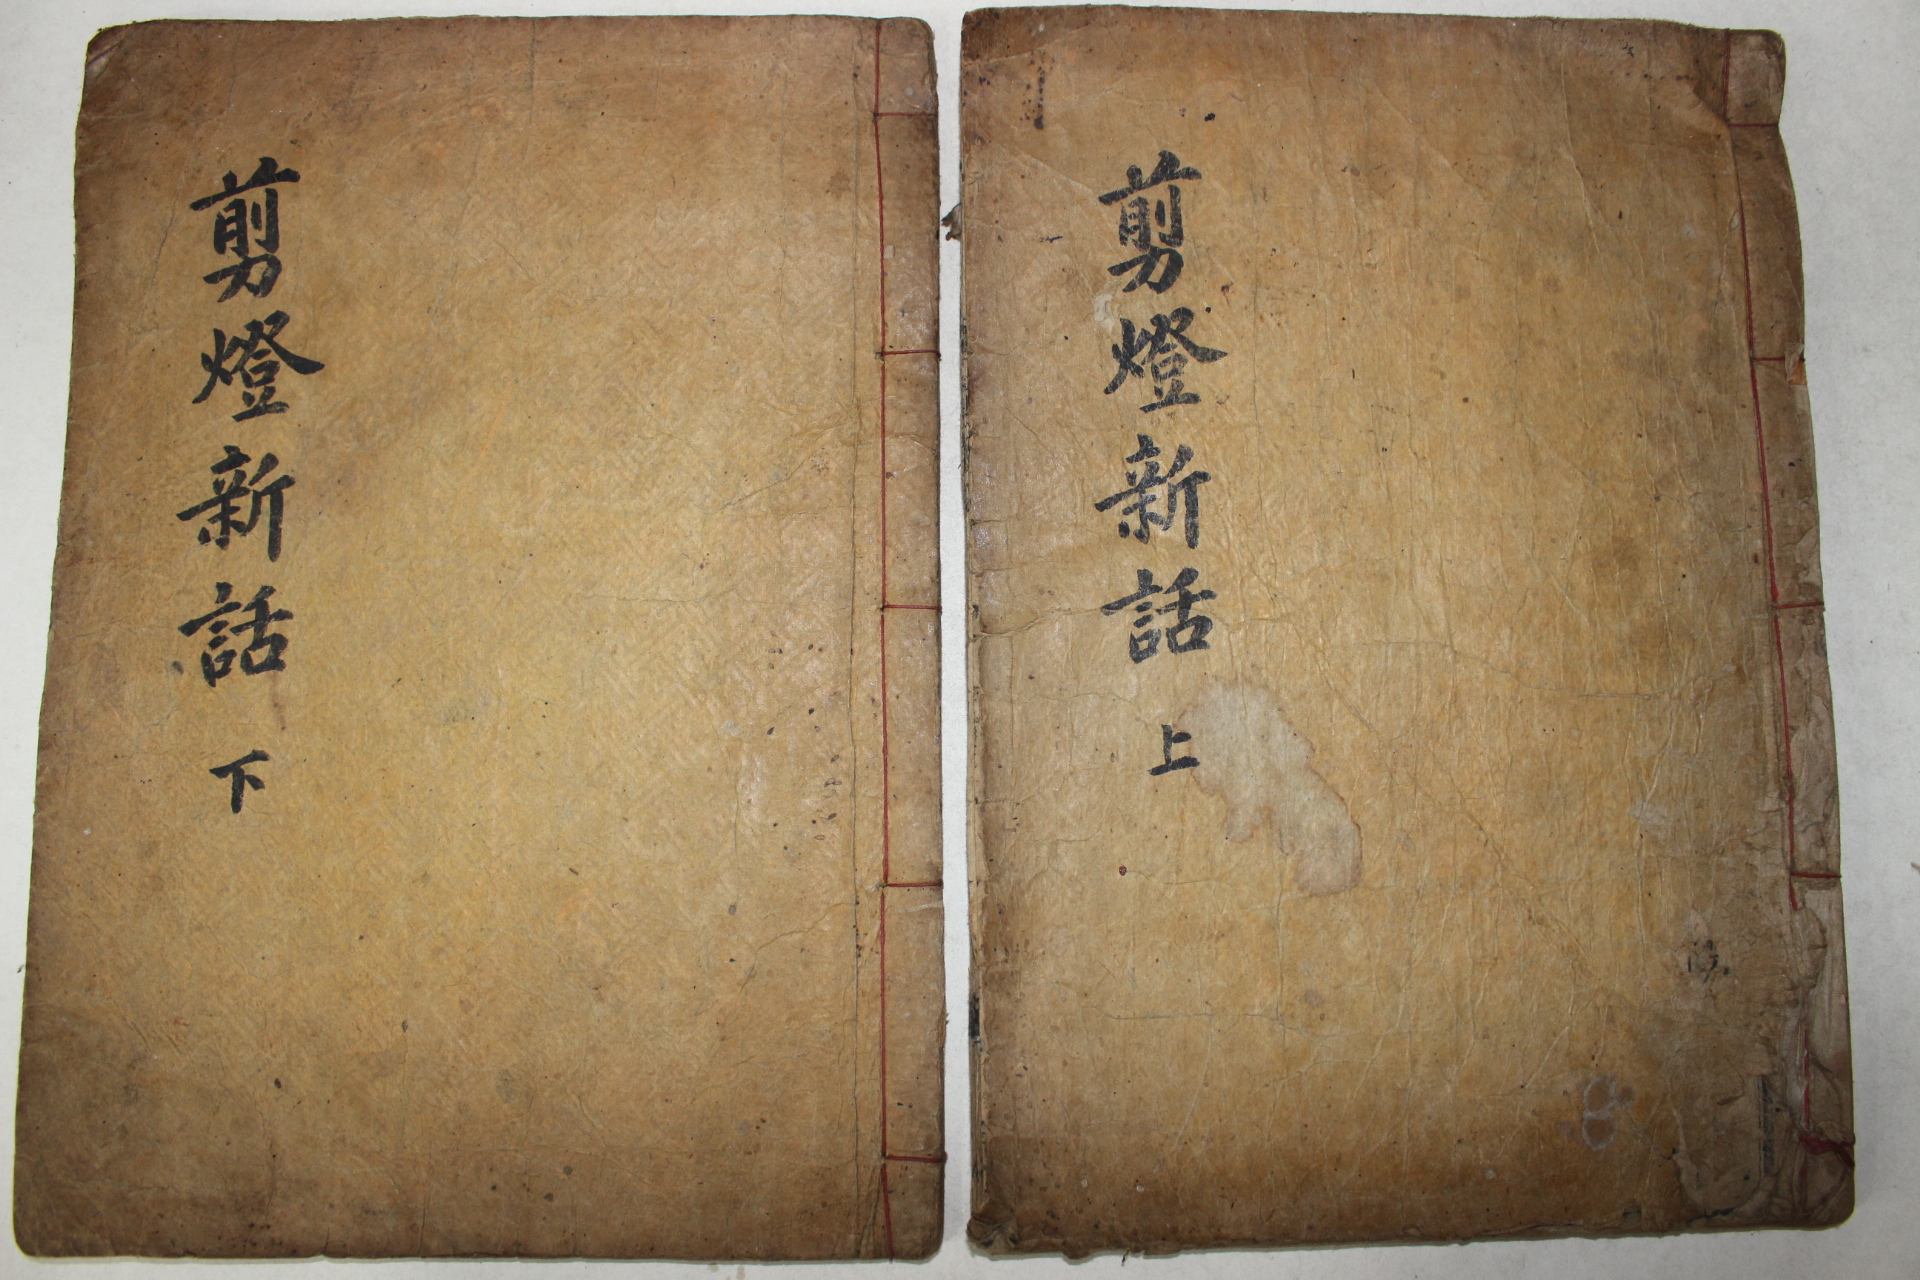 剪燈新話 上
剪燈新話 下